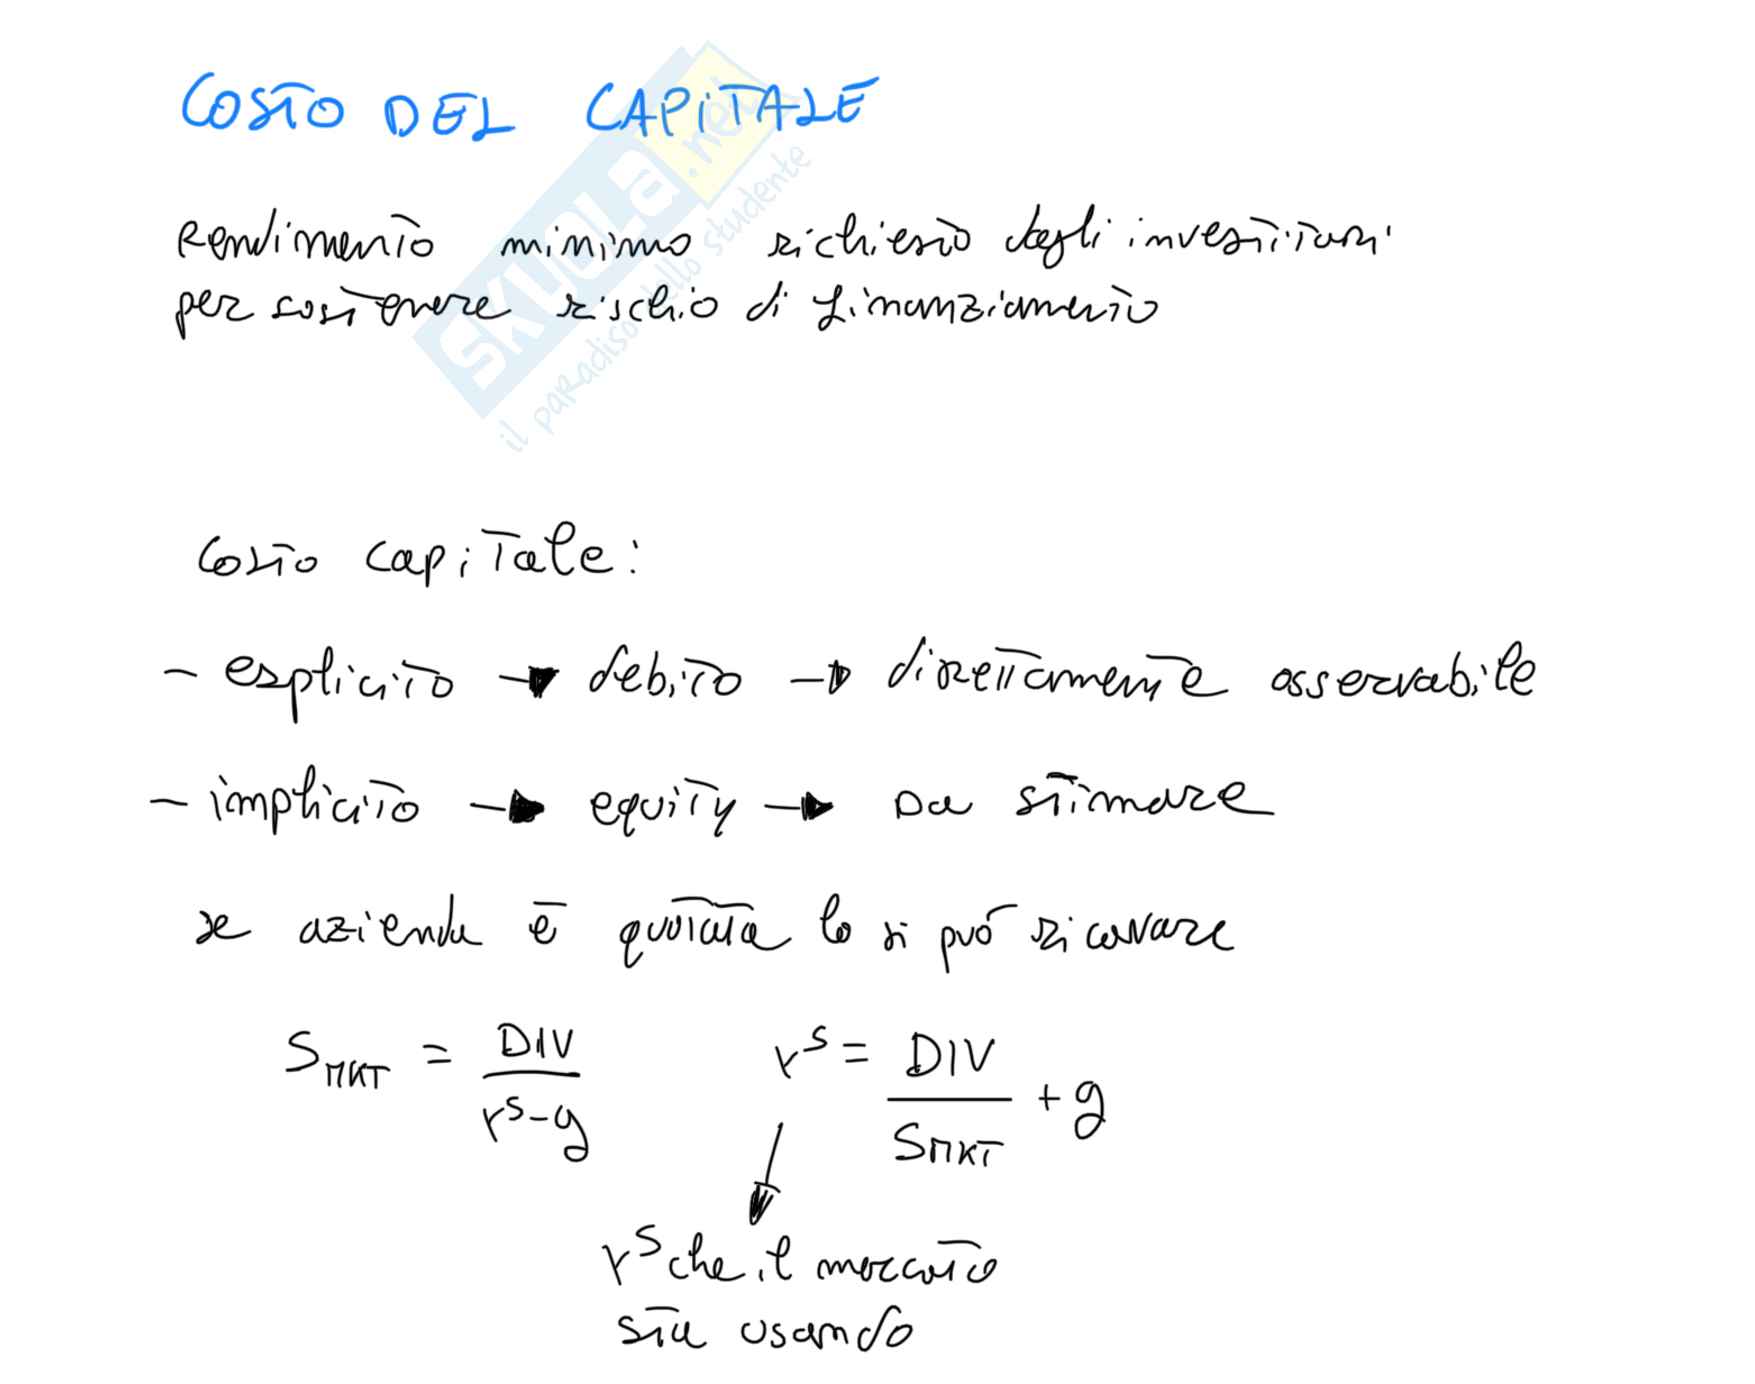 COSTO DEL CAPITALE
Rendimento minimo richiesto dagli investitori
per sostenere rischio di finanziamento
SKUOLA.net
il paradiso dello studente
Costo capitale:
- esplicito → debito → direttamente osservabile
- implicito → equity → Da stimare
se azienda è quotata lo si può ricavare
S_MKT = DIV / (r^S - g)    r^S = DIV / S_MKT + g
r^S che il mercato
sta usando